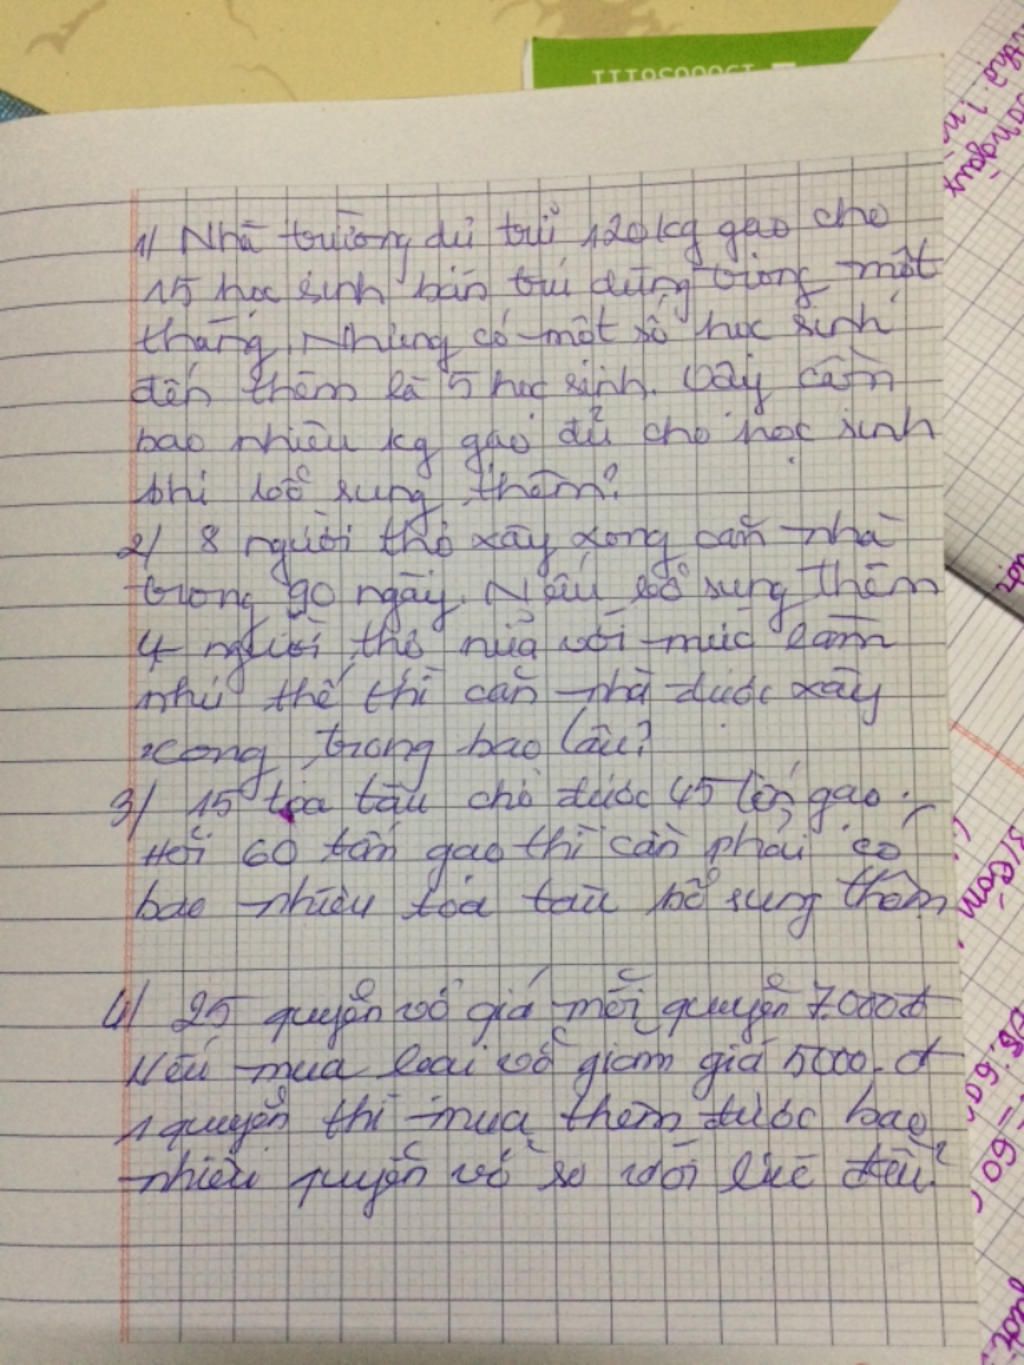 1/ Nhà trường dự trữ 120kg gạo cho
15 học sinh bán trú dùng trong một
tháng, Nhưng có một số học sinh
đến thêm là 5 học sinh. Vậy cần
bao nhiêu kg gạo đủ cho học sinh
khi bổ sung thêm?
2/ 8 người thợ xây xong căn nhà
trong 90 ngày. Nếu bổ sung thêm
4 người thợ nữa với mức làm
như thế thì căn nhà được xây
xong trong bao lâu?
3/ 15 toa tàu chở được 45 tấn gạo.
Hỏi 60 tấn gạo thì cần phải có
bao nhiêu toa tàu bổ sung thêm
4/ 25 quyển vở giá mỗi quyển 7.000đ
Nếu mua loại vở giảm giá 5000.đ
1 quyển thì mua thêm được bao
nhiêu quyển vở so với lúc đầu?